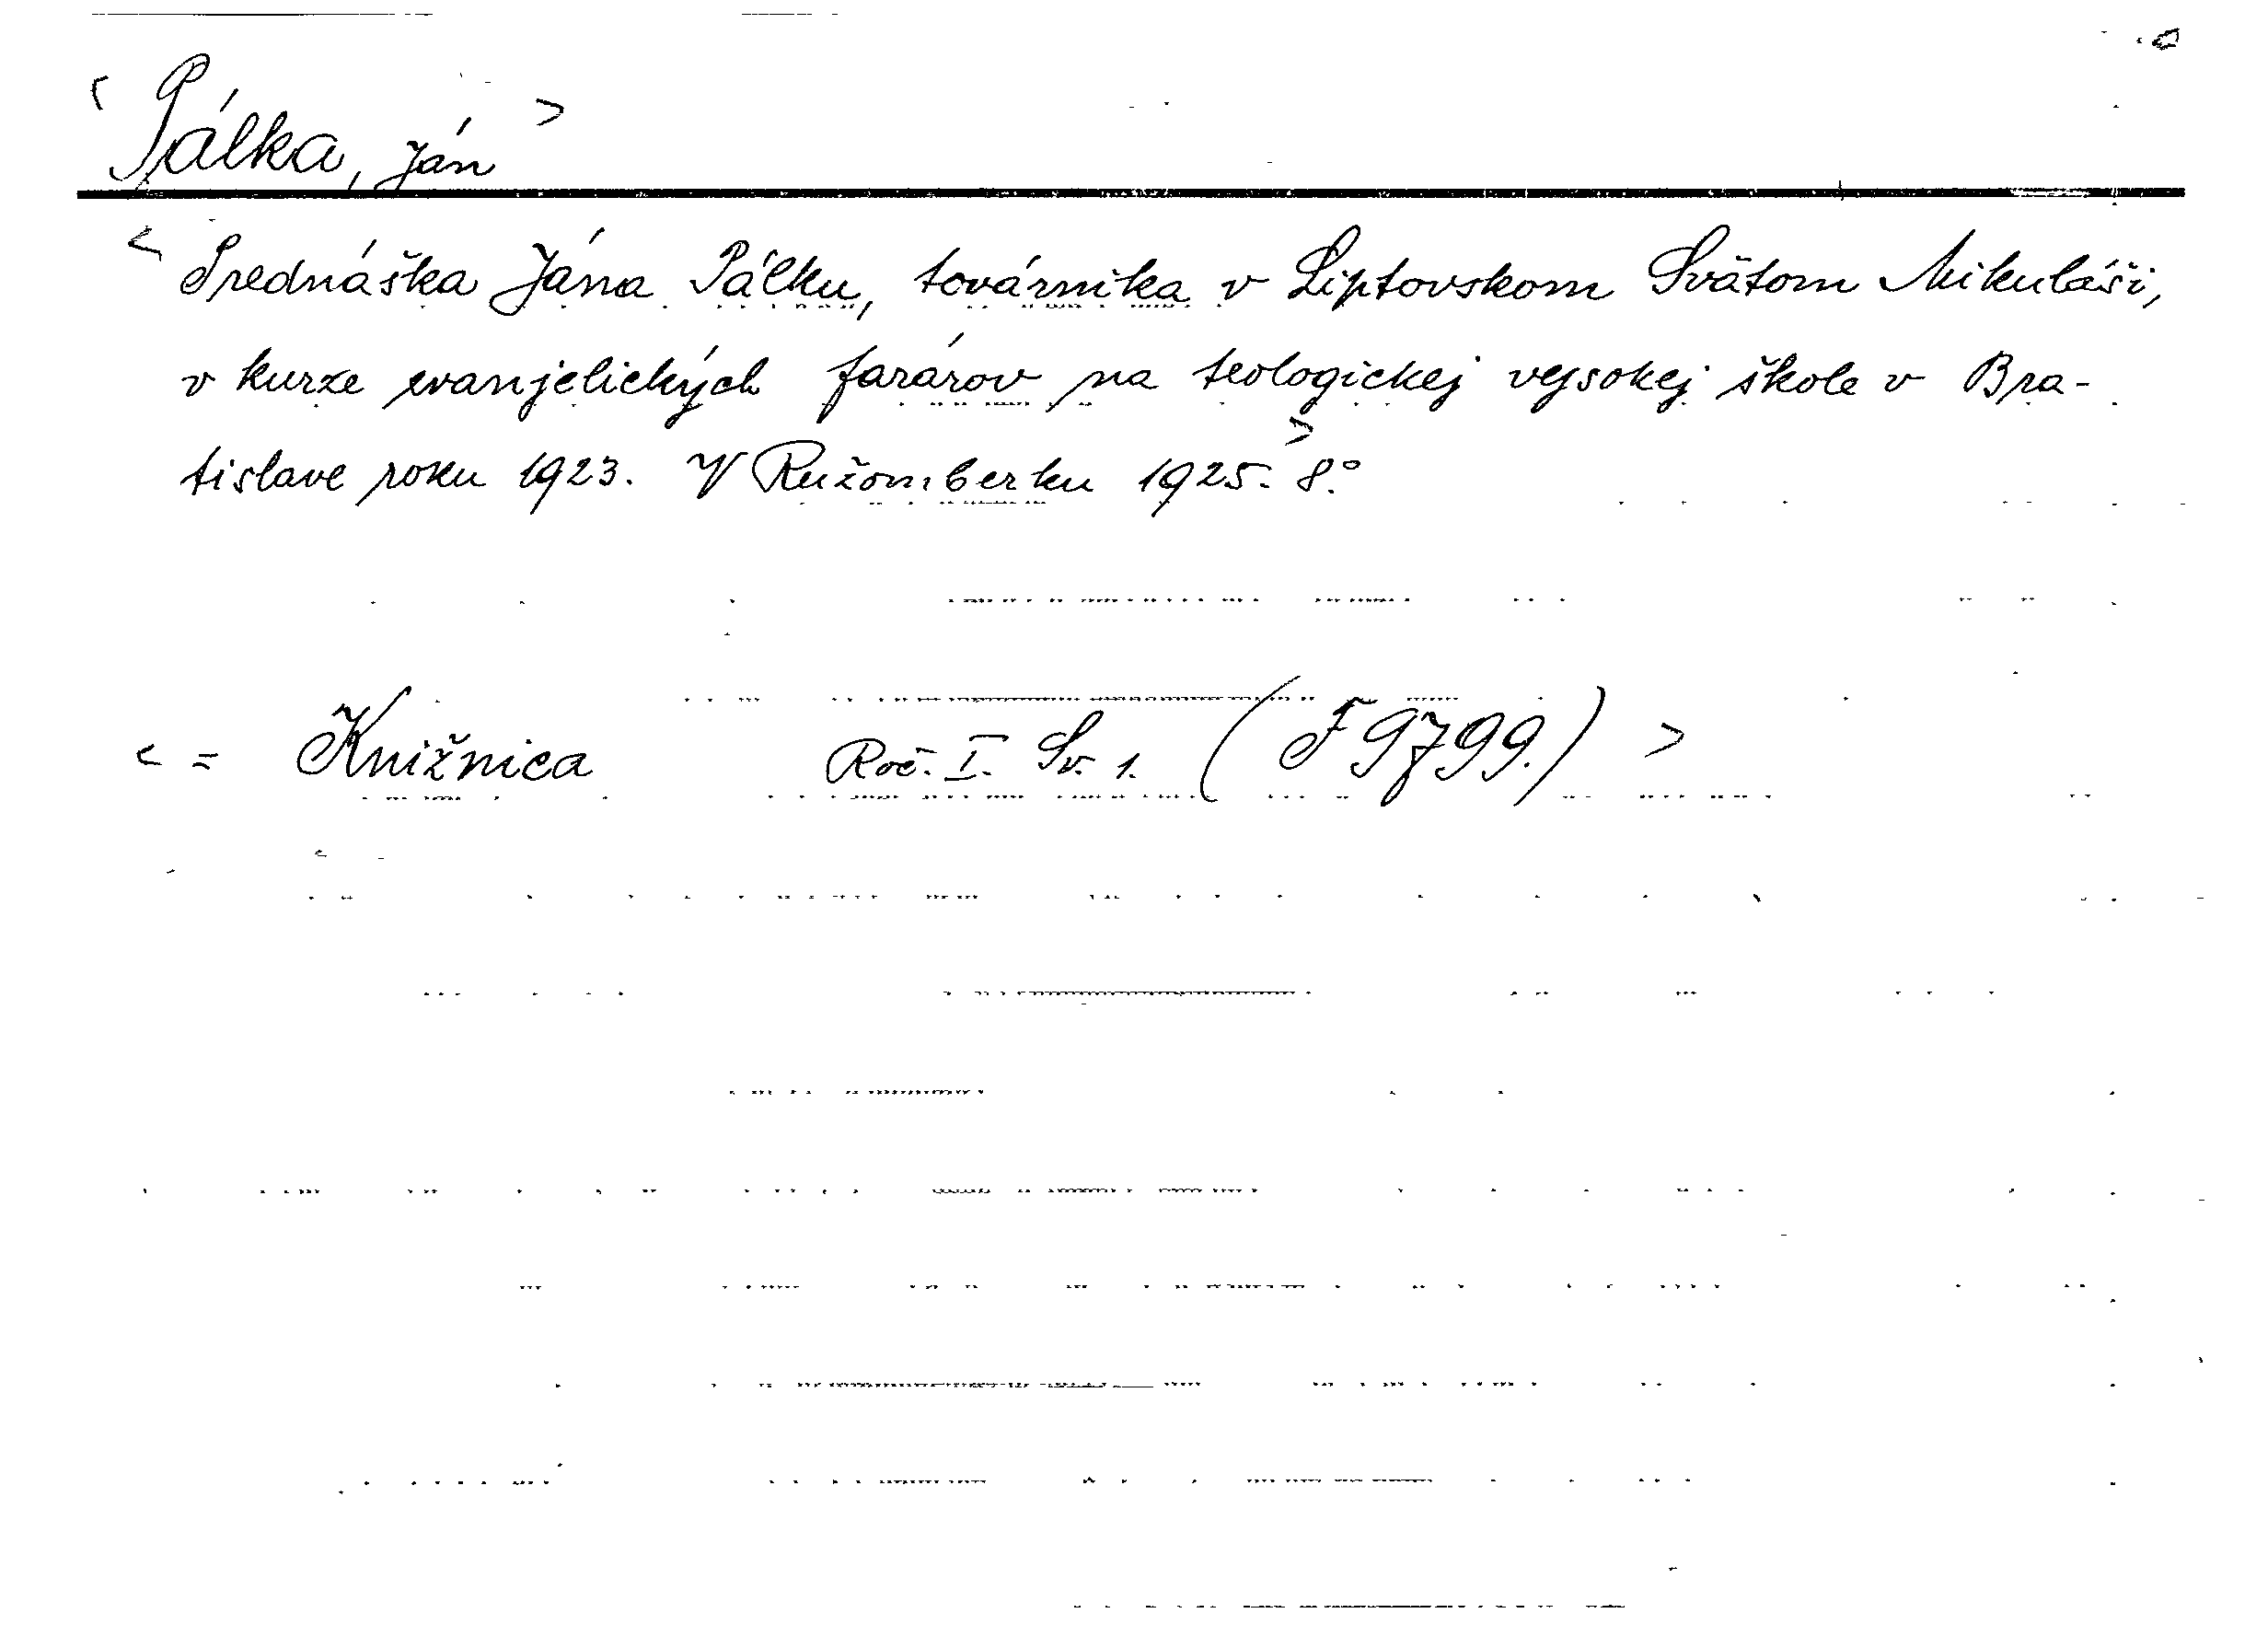 < Pálka, Ján >
< Prednáška Jána Pálku, továrnika v Liptovskom Svätom Mikuláši,
v kurze evanjelických farárov na teologickej vysokej škole v Bra-
tislave roku 1923. V Ružomberku 1925. 8.° >
< = Knižnica Roč. I. Sv. 1. (F 9799.) >